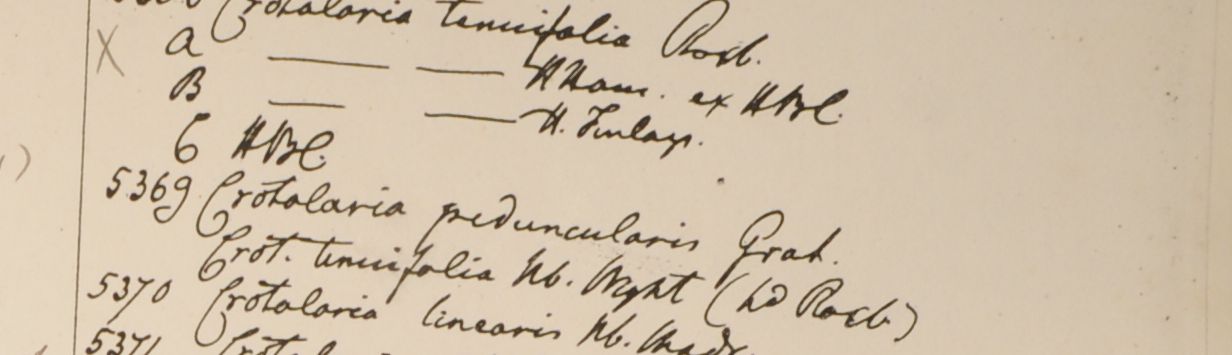 Crotalaria tenuifolia Roxb.
a — — HHam. ex HBC.
B — — H. Finlays.
C HBC.
5369 Crotalaria peduncularis Grah.
Crot. tenuifolia Hb. Wight (hd Roxb)
5370 Crotalaria linearis Hb. Madr.
5371 Crotal